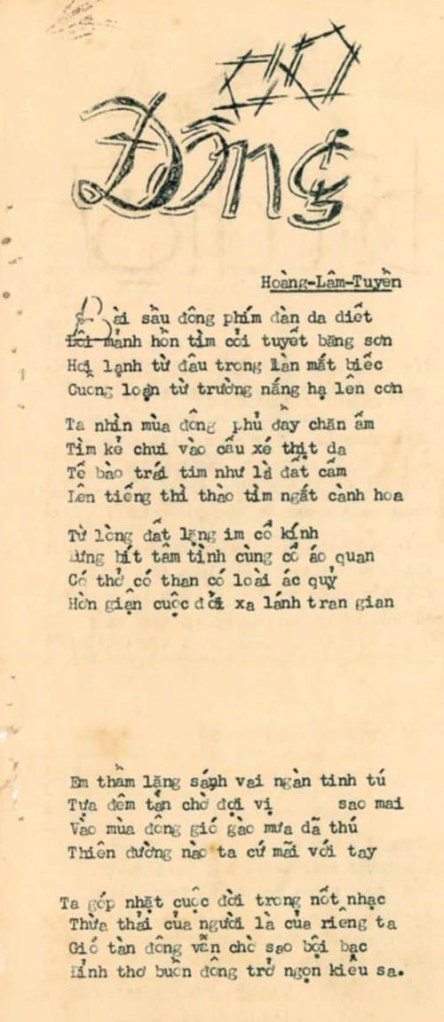 Đông
Hoàng-Lâm-Tuyền
Bài sầu đông phím đàn da diết
mảnh hồn tìm cõi tuyết băng sơn
Hơi lạnh từ đâu trong làn mắt biếc
Cuồng loạn từ trường nắng hạ lên cơn
Ta nhìn mùa đông phủ đầy chăn ấm
Tìm kẻ chui vào cấu xé thịt da
Tế bào trái tim như là đất cấm
Lên tiếng thì thào tìm ngắt cành hoa
Từ lòng đất lặng im cổ kính
bít tâm tình cùng cổ áo quan
Có thở có than có loài ác quỷ
Hờn giận cuộc đời xa lánh tran gian
Em thầm lặng sánh vai ngàn tinh tú
Tựa đêm tàn chờ đợi vị sao mai
Vào mùa đông gió gào mưa dã thú
Thiên đường nào ta cứ mãi với tay
Ta góp nhặt cuộc đời trong nốt nhạc
Thừa thải của người là của riêng ta
Gió tàn đông vẫn chờ sao bội bạc
thơ buồn đông trở ngọn kiêu sa.